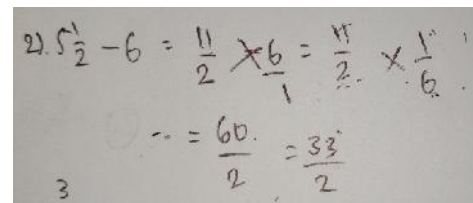 2). 5 1/2 - 6 = 11/2 × 6/1 = 11/2 × 1/6
= 60/2 = 33/2
3